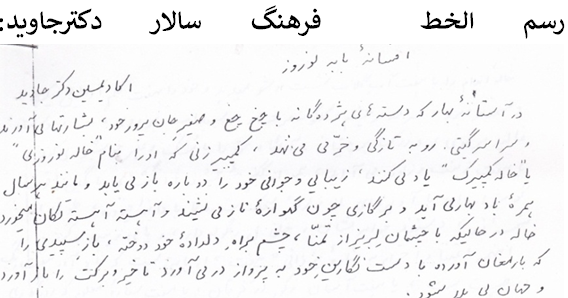 رسم الخط فرهنگ سالار دکترجاوید:
افسانهٔ بابه نوروز
اکادیمیسین دکتر جاوید
در آستانهٔ بهار که دسته های پرندگانه با چخ چخ و صفیر جان پرور خود، بشارتها می آورند
و سراسر گیتی رو به تازگی و خرمی می نهد، کمپیر زنی که او را بنام "خاله نوروزی"
یا "خاله کمپیرک" یاد می کنند، زیبایی و جوانی خود را دوباره باز می یابد و مانند هر سال
همرهٔ باد بهار می آید و بر گازی چون گهوارهٔ ناز می نشیند و آهسته آهسته تکان میخورد
خاله در حالیکه با چشمان لبریز از تمنا، چشم براه دلدادهٔ خود دوخته، باز سپیدی را
که بارمغان آورده با دست نگارین خود به پرواز در می آورد تا خیر و برکت را باز آورد
و جهان بی بلا شود.